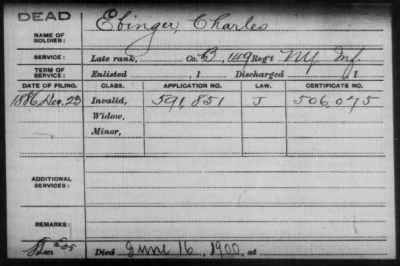 DEAD
NAME OF SOLDIER: Ebinger, Charles
SERVICE: Late rank, Co. B, 149 Reg't NY Inf.
TERM OF SERVICE: Enlisted , 1 Discharged , 1
DATE OF FILING. CLASS. APPLICATION NO. LAW. CERTIFICATE NO.
1886, Dec. 23 Invalid, 591,851 J 506,045
Widow,
Minor,
ADDITIONAL SERVICES:
REMARKS:
Died June 16, 1900, at